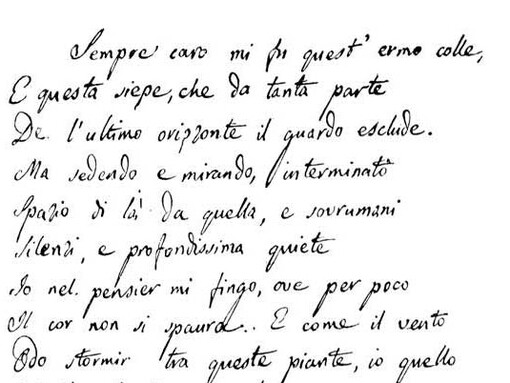 Sempre caro mi fu quest' ermo colle,
E questa siepe, che da tanta parte
De l'ultimo orizzonte il guardo esclude.
Ma sedendo e mirando, interminato
Spazio di là da quella, e sovrumani
Silenzi, e profondissima quiete
Io nel pensier mi fingo, ove per poco
Il cor non si spaura.. E come il vento
Odo stormir tra queste piante, io quello